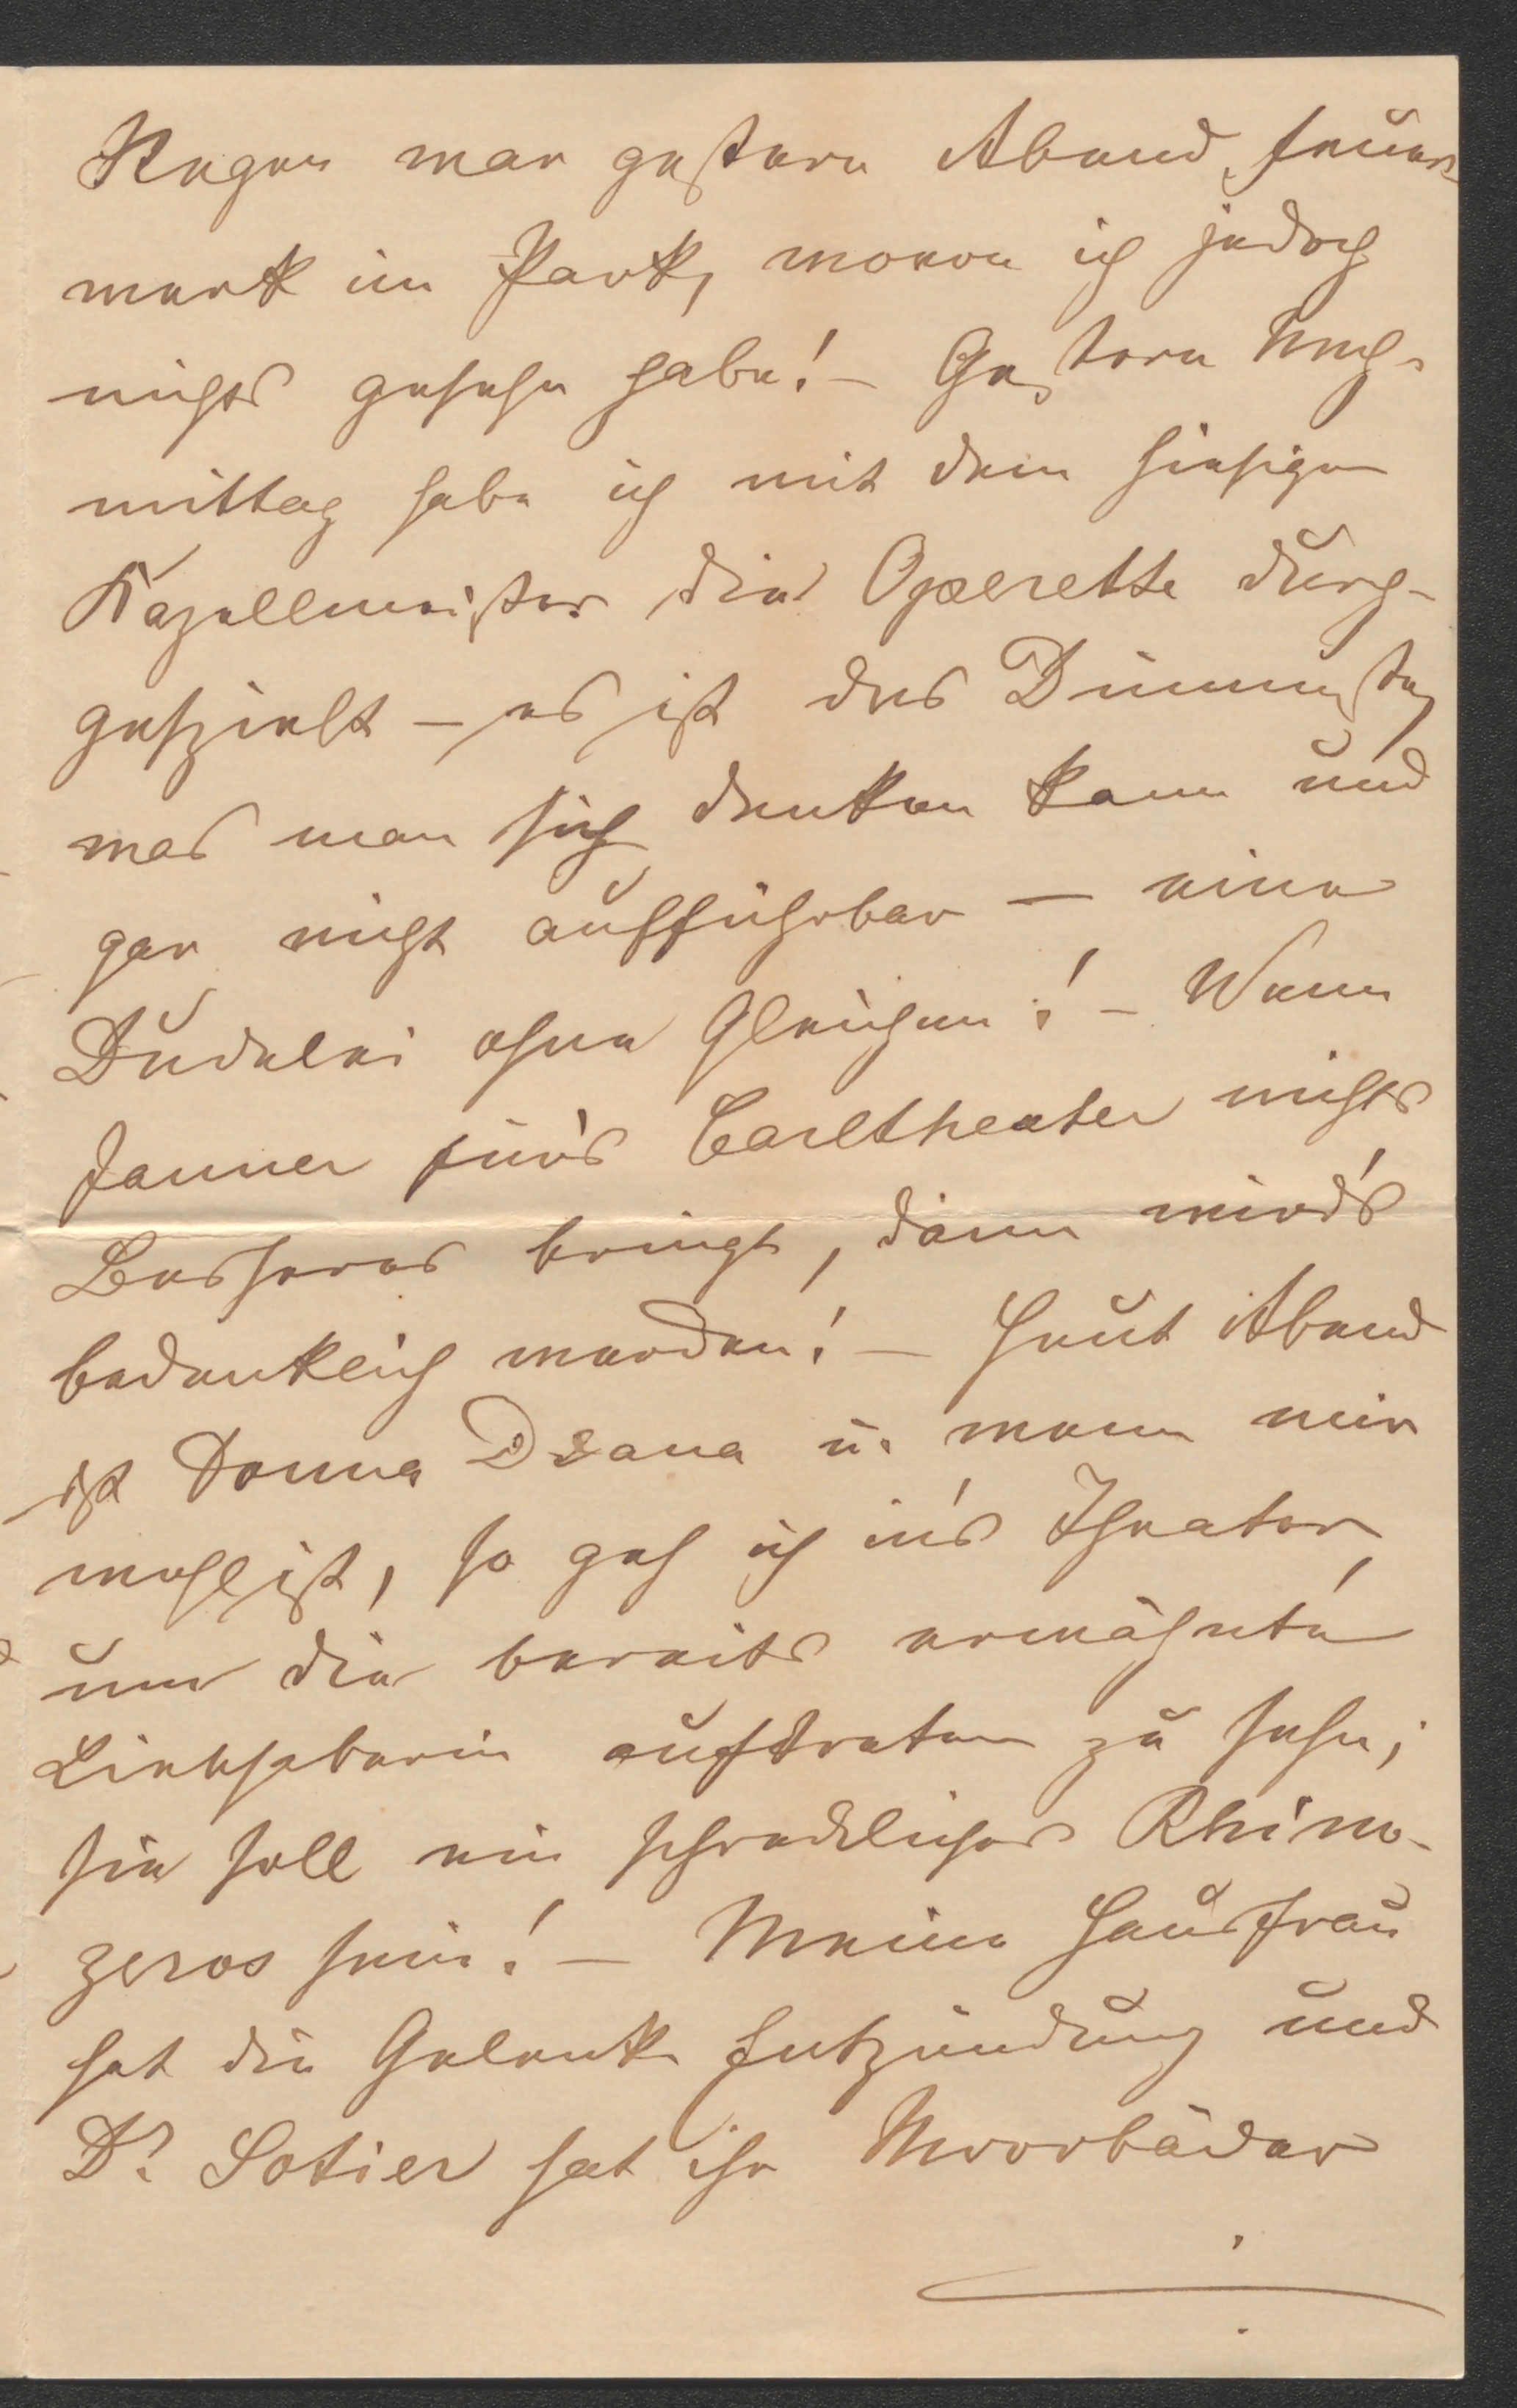 Regen war gestern Abend Feuer-
werk im Park, wovon ich jedoch
nichts gesehn habe! – Gestern Nach-
mittag habe ich mit dem hiesigen
Kapellmeister die Operette durch-
gespielt – es ist das Dümmste
was man sich denken kann und
gar nicht aufführbar – eine
Dudelei ohne Gleichen! – Wenn
Jauner für's Carltheater nichts
Besseres bringt, dann wird's
bedenklich werden! – Heut Abend
ist Donna Diana u. wenn mir
wohl ist, so geh ich in's Theater,
um die bereits erwähnte
Liebhaberin auftreten zu sehn;
sie soll ein schreckliches Rhino-
zeros sein! – Meine Hausfrau
hat die Gelenk Entzündung und
Dr. Sotier hat ihr Moorbäder